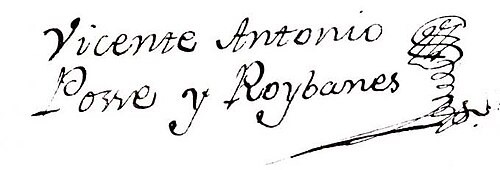 Vicente Antonio
Porre y Roybanes